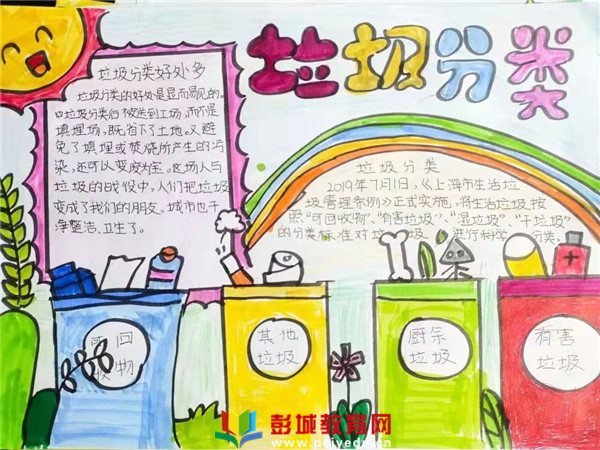 垃圾分类
垃圾分类好处多
垃圾分类的好处是显而易见的。
垃圾分类后被送到工场，而不是
填埋场。既省下了土地，又避
免了填埋或焚烧所产生的污
染，还可以变废为宝。这场人与
垃圾的战役中，人们把垃圾
变成了我们的朋友。城市也干
净整洁、卫生了。
垃圾分类
2019年7月1日，《上海市生活垃
圾管理条例》正式实施，将生活垃圾按
照“可回收物”、“有害垃圾”、“湿垃圾”、“干垃圾”
的分类标准对垃圾进行科学分类。
可回
收物
其他
垃圾
厨余
垃圾
有害
垃圾
彭城教育网